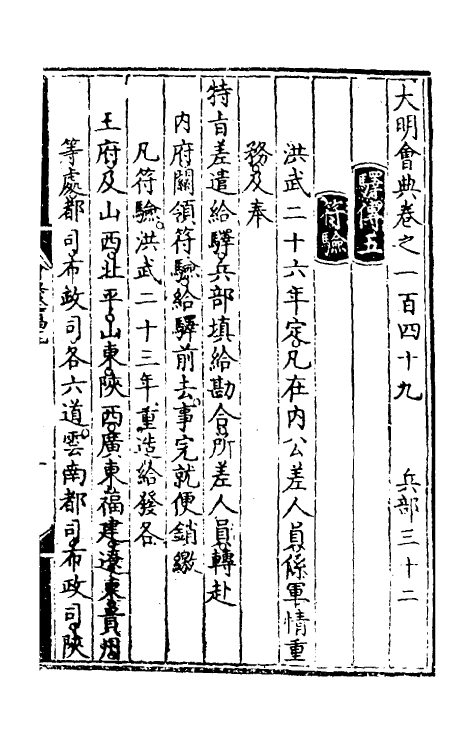 大明會典卷之一百四十九 兵部三十二
驛傳五
符驗
洪武二十六年定凡在內公差人員係軍情重
務及奉
特旨差遣給驛兵部填給勘合所差人員轉赴
內府關領符驗給驛前去事完就便銷繳
凡符驗洪武二十三年重造給發各
王府及山西北平山東陝西廣東福建遼東貴州
等處都司布政司各六道雲南都司布政司陝